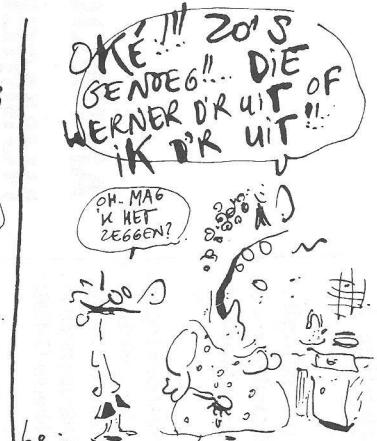 OKÉ!!! ZO'S
GENOEG!!... DIE
WERNER D'R UIT OF
IK D'R UIT!!
OH.. MAG
'K HET
ZEGGEN?